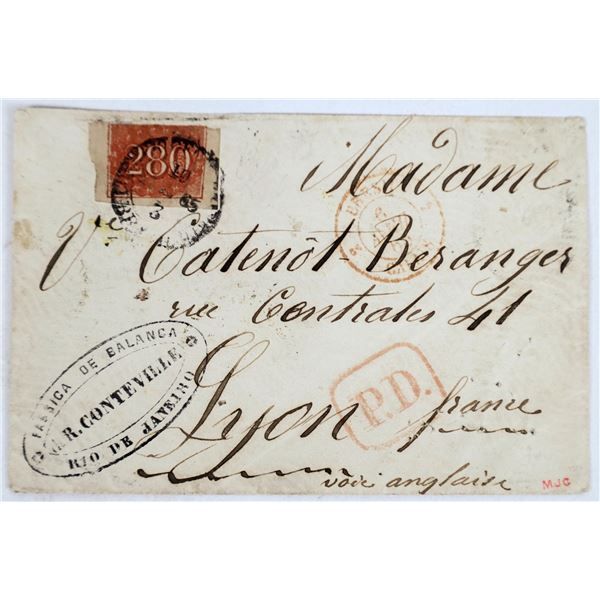 280
Madame
Catenôt-Beranger
rue Centrales 41
Lyon france
voie anglaise
P.D.
FABRICA DE BALANÇAS
R. CONTEVILLE
RIO DE JANEIRO
MJC